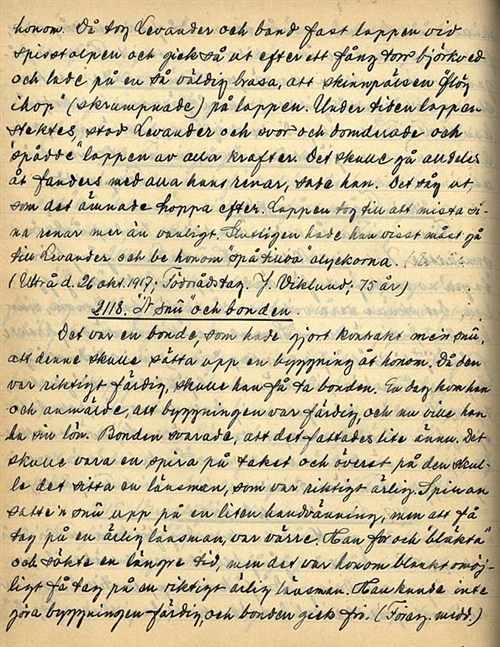 honom. Då tog Levander och band fast lappen vid
spisstolpen och gick så ut efter ett fång torr björkved
och lade på en så väldig brasa, att skinnpälsen "flög
ihop" (skrumpnade) på lappen. Under tiden lappen
stektes, stod Levander och svor och domderade och
"spådde" lappen av alla krafter. Det skulle gå alldeles
åt fanders med alla hans renar, sade han. Det såg ut,
som det ämnade hoppa efter. Lappen tog till att mista si-
na renar mer än vanligt. Slutligen lade han visst måst gå
till Levander och be honom "spå tillbå" olyckorna.
(Utrå d. 26 okt. 1917, Tödråds tag. J. Viklund, 75 år)
2118. "N snü" och bonden.
Det var en bonde, som hade gjort kontrakt me'n snü,
att denne skulle sätta upp en byggning åt honom. Då den
var riktigt färdig, skulle han få ta bonden. En dag kom han
och anmälde, att byggningen var färdig, och nu ville han
ha sin lön. Bonden svarade, att det fattades lite ännu. Det
skulle vara en spira på taket och överst på den skul-
le det sitta en länsman, som var riktigt ärlig. Spiran
satte'n snü upp på en liten handvänning, men att få
tag på en ärlig länsman, var värre. Han for och "bläkta"
och sökte en längre tid, men det var honom blankt omöj-
ligt få tag på en riktigt ärlig länsman. Han kunde inte
göra byggningen färdig, och bonden gick fri. (Föreg. medd.)